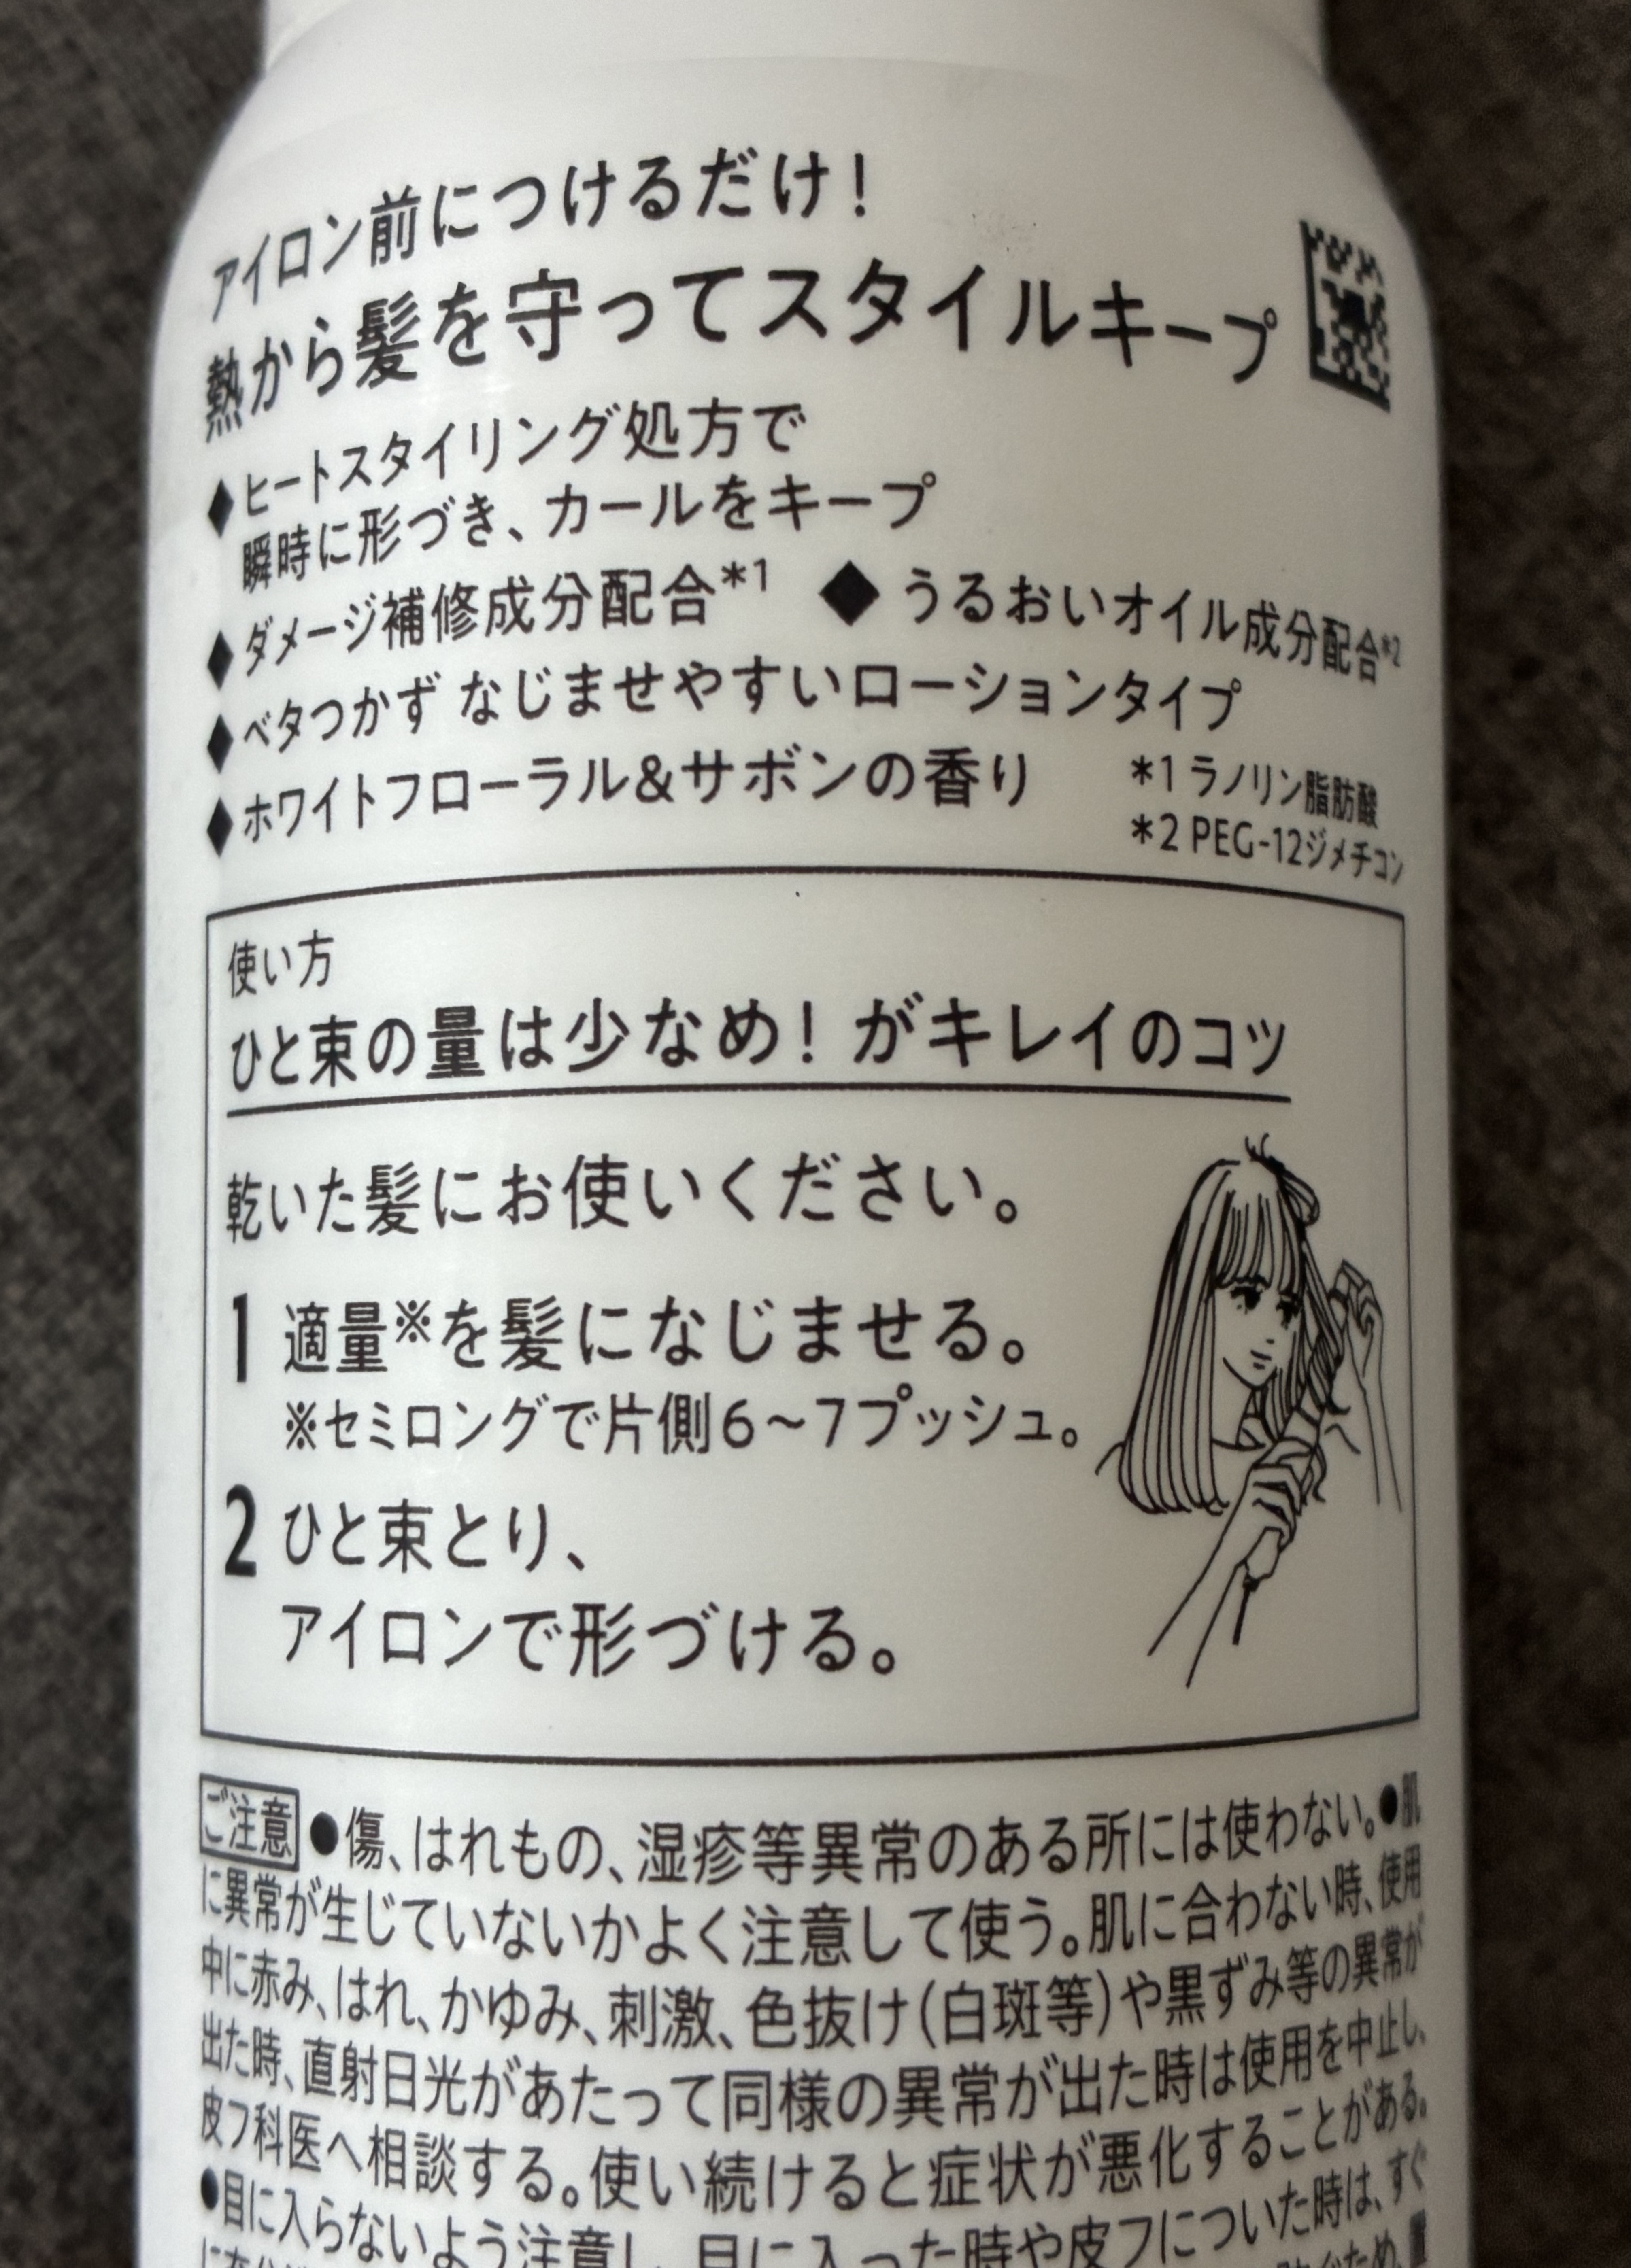 アイロン前につけるだけ！
熱から髪を守ってスタイルキープ
◆ヒートスタイリング処方で
瞬時に形づき、カールをキープ
◆ダメージ補修成分配合*1 ◆うるおいオイル成分配合*2
◆ベタつかず なじませやすいローションタイプ
◆ホワイトフローラル&サボンの香り
*1 ラノリン脂肪酸
*2 PEG-12ジメチコン
使い方
ひと束の量は少なめ！がキレイのコツ
乾いた髪にお使いください。
1 適量※を髪になじませる。
※セミロングで片側6～7プッシュ。
2 ひと束とり、
アイロンで形づける。
ご注意 ●傷、はれもの、湿疹等異常のある所には使わない。●肌
に異常が生じていないかよく注意して使う。肌に合わない時、使用
中に赤み、はれ、かゆみ、刺激、色抜け(白斑等)や黒ずみ等の異常が
出た時、直射日光があたって同様の異常が出た時は使用を中止し、
皮フ科医へ相談する。使い続けると症状が悪化することがある。
●目に入らないよう注意し、目に入った時や皮フについた時は、すぐ